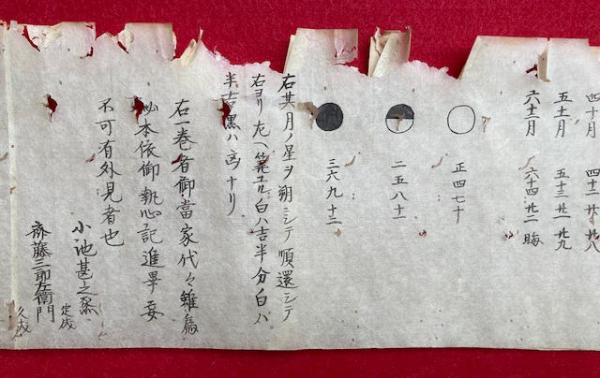 四十月 四十二 廿 廿八
五十一月 五十三 廿一 廿九
六十二月 六十四 廿二 晦
正四七十
二五八十一
三六九十二
右其月ノ星ヲ朔ニシテ順還シテ
右ヨリ左ヘ算ユル白ハ吉半分白ハ
半吉黒ハ凶ナリ
右一巻者御當家代々雖為
秘本依御執心記進畢妄
不可有外見者也
小池甚之丞
定成
斎藤三郎左衛門